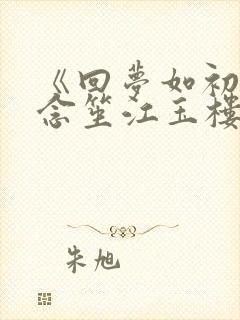 《回夢如初
念笙江玉樓
朱旭